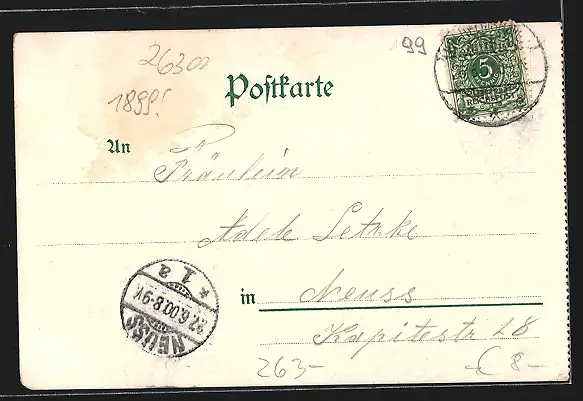 26302
99
1899!
Postkarte
5
An
Fräulein
Adele Letzke
in Neuss
Kapitelstr 28
NEUSS
22.6.00.8-9V.
* 1a
263- € 8-